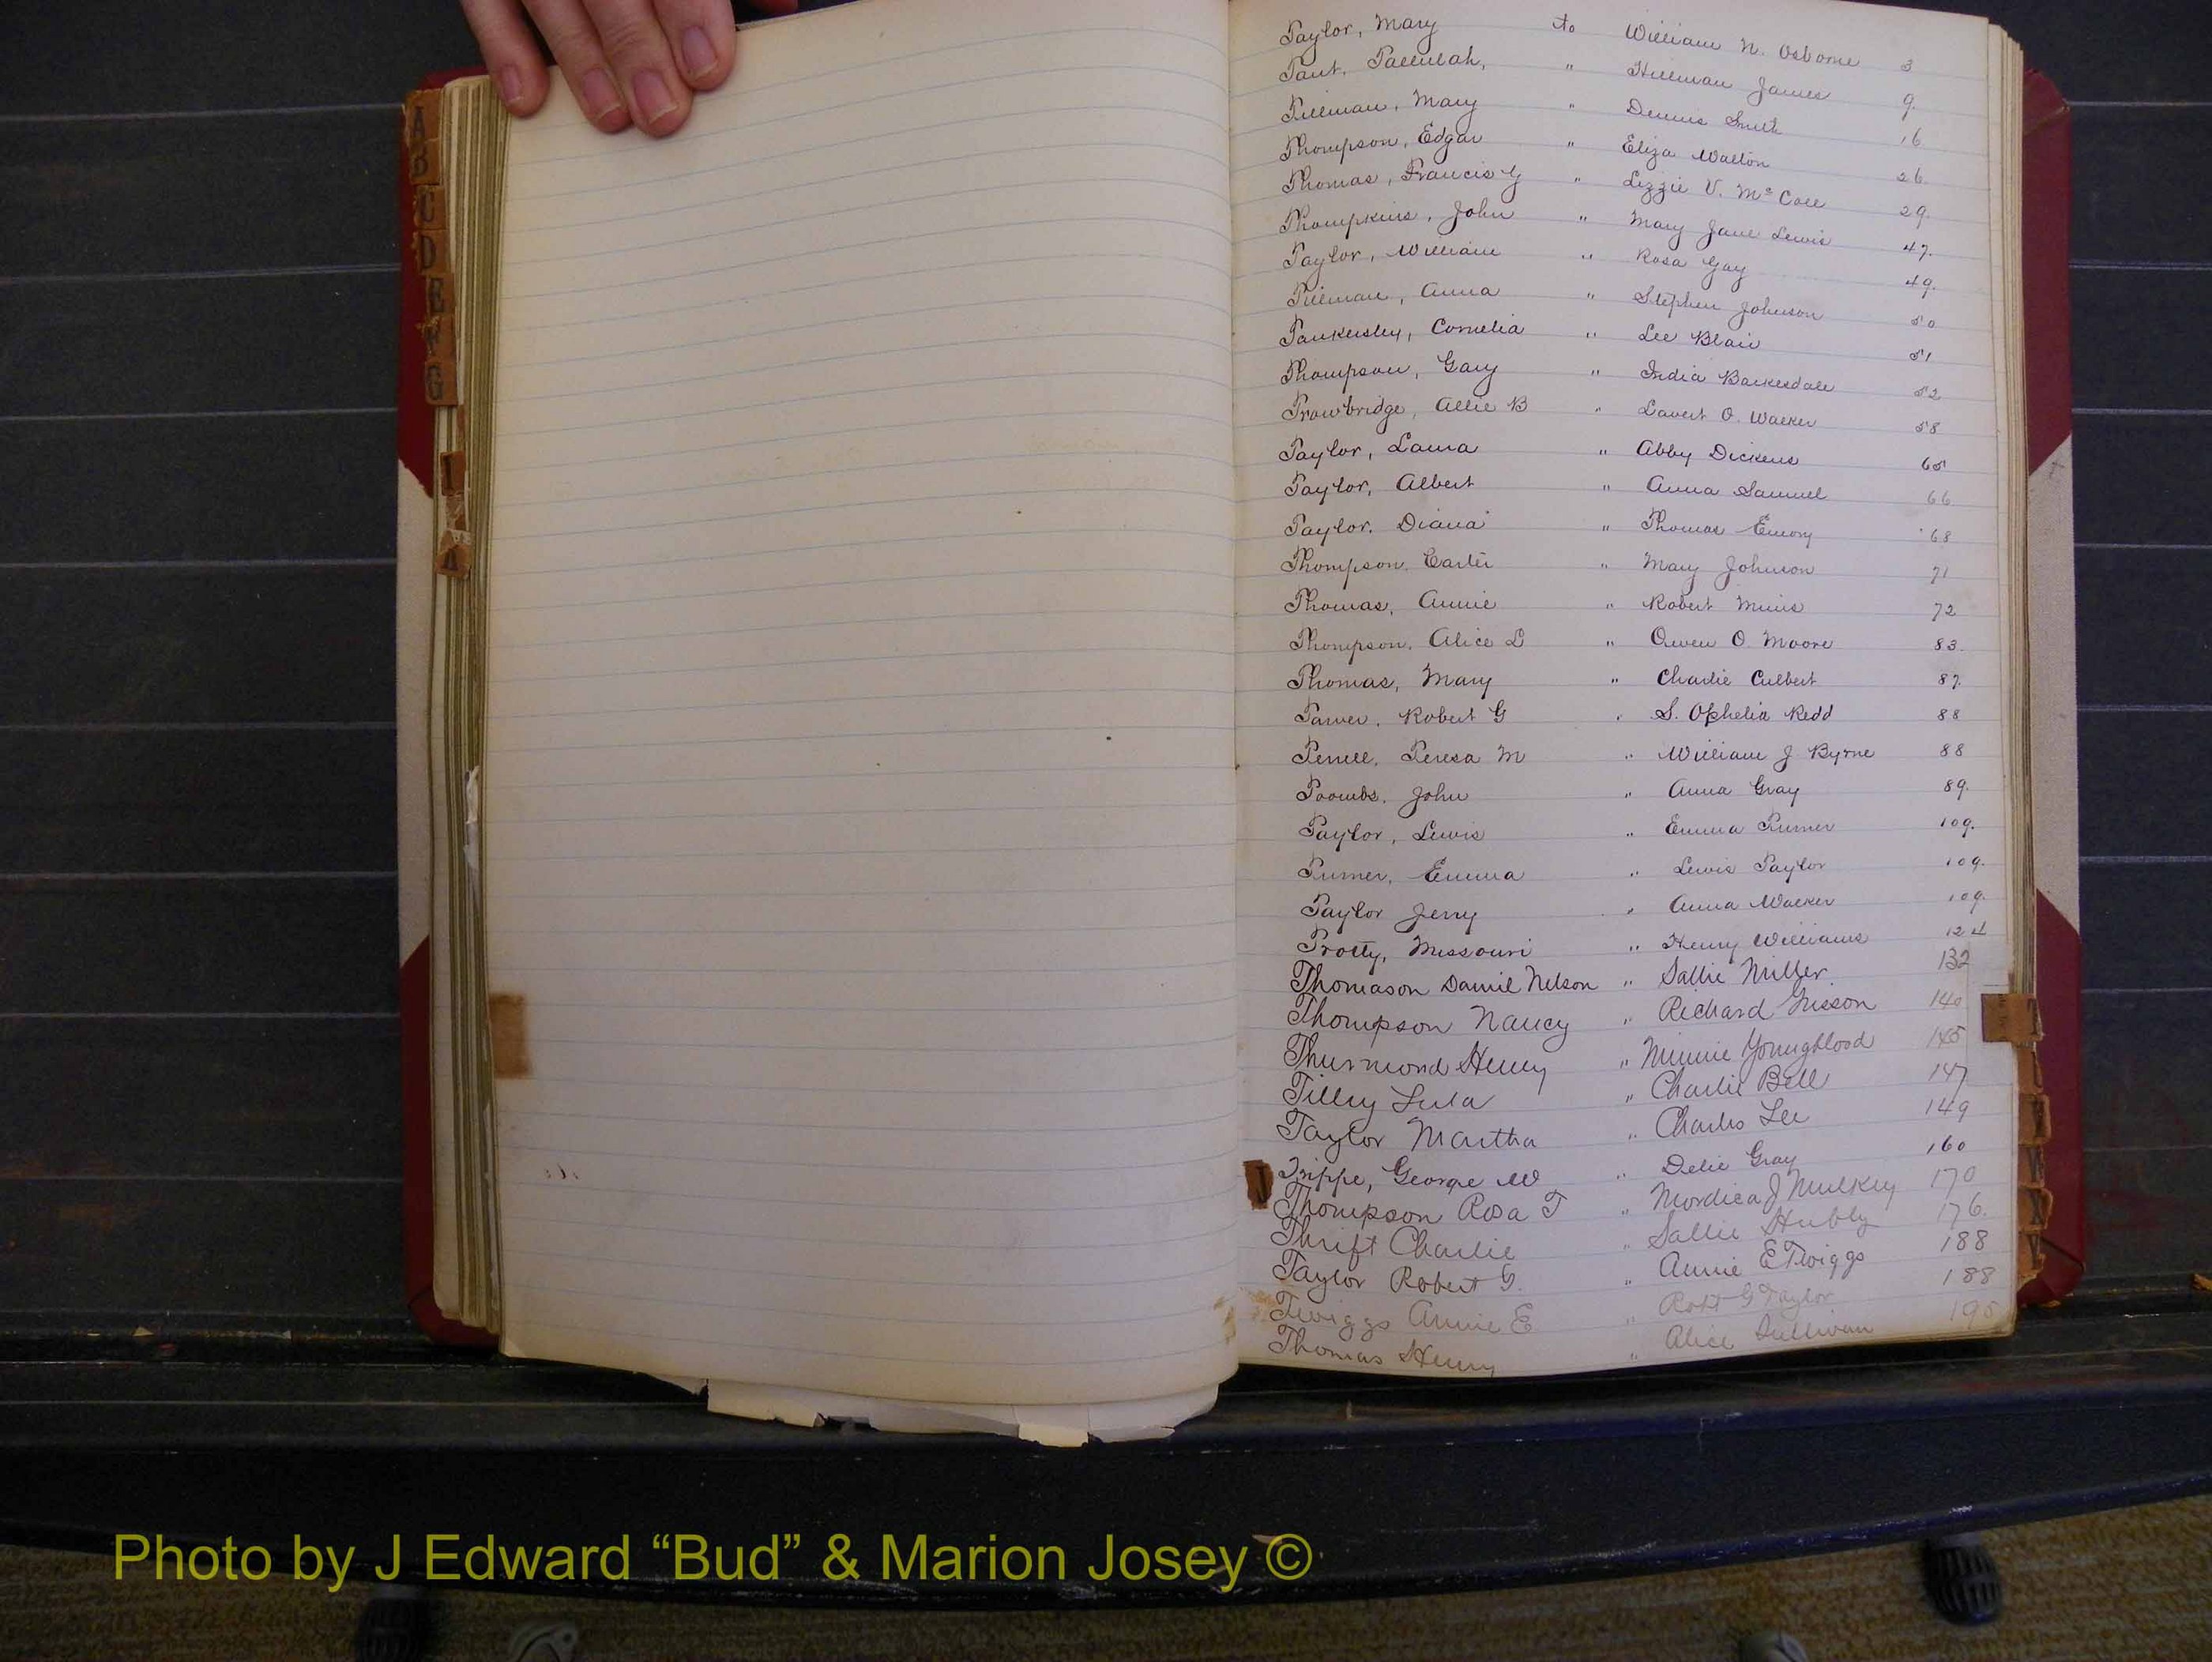 A
B
C
D
E
F
G
I
Taylor, Mary to William N. Osborne 3
Taut, Tallulah, " Hillman James 9.
Tillman, Mary " Dennis Smith 16
Thompson, Edgar " Eliza Walton 26
Thomas, Francis G " Lizzie V. McCall 29.
Thompkins, John " Mary Jane Lewis 47.
Taylor, William " Rosa Gay 49.
Tillman, Anna " Stephen Johnson 50
Tankersley, Cornelia " Lee Blair 51
Thompson, Gary " India Barkesdale 52
Trowbridge, Allie B " O. Walker 58
Taylor, Laura " Abby Dickens 65
Taylor, Albert " Anna Samuel 66
Taylor. Diana " Thomas Emory 68
Thompson. Carter " Mary Johnson 71
Thomas, Annie " Robert Mims 72
Thompson. Alice L " Owen O. Moore 83.
Thomas, Mary " Charlie Culbert 87.
Tarver. Robert G " S. Ophelia Redd 88
Terrell. Teresa M " William J Byrne 88
Toombs. John " Anna Gray 89.
Taylor, Lewis " Emma Turner 109.
Turner, Emma " Lewis Taylor 109.
Taylor Jerry " Anna Walker 109.
Trotty, Missouri " Henry Williams 124
Thomason Daniel Nelson " Sallie Miller 132
Thompson Nancy " Richard 140
Thurmond Henry " Minnie Youngblood 145
Tilley Lula " Charlie Bell 147
Taylor Martha " Charles Lee 149
Trippe, George W " Delie Gray 160
Thompson Rosa T " Mordica J Mulkey 170
Thrift Charlie " Sallie Hubly 176.
Taylor Robert G. " Annie E Twiggs 188
Twiggs Annie E " Robt G Taylor 188
Thomas Henry " Alice Sullivan 195
Photo by J Edward “Bud” & Marion Josey ©